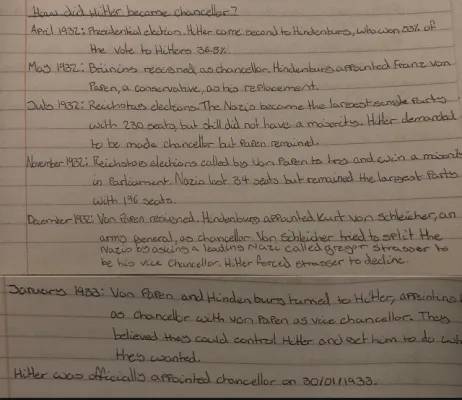 How did Hitler become chancellor?
April 1932: Presidential election. Hitler came second to Hindenburg, who won 53% of
the vote to Hitlers 36.8%.
May 1932: Brüning resigned, as chancellor. Hindenburg appointed Franz von
Papen, a conservative, as his replacement.
July 1932: Reichstag elections. The Nazis became the largest single Party
with 230 seats, but still did not have a majority. Hitler demanded
to be made chancellor but Papen remained.
November 1932: Reichstag elections called by Von Papen to try and win a majority
in Parliament. Nazis lost 34 seats but remained the largest Party
with 196 seats.
December 1932: Von Papen resigned. Hindenburg appointed Kurt von Schleicher, an
army general, as chancellor. Von Schleicher tried to split the
Nazis by asking a leading Nazi called gregor strasser to
be his vice chancellor. Hitler forced strasser to decline.
January 1933: Von Papen and Hindenburg turned to Hitler, appointing
as chancellor with von Papen as vice chancellor. They
believed they could control Hitler and get him to do
they wanted.
Hitler was officially appointed chancellor on 30/01/1933.